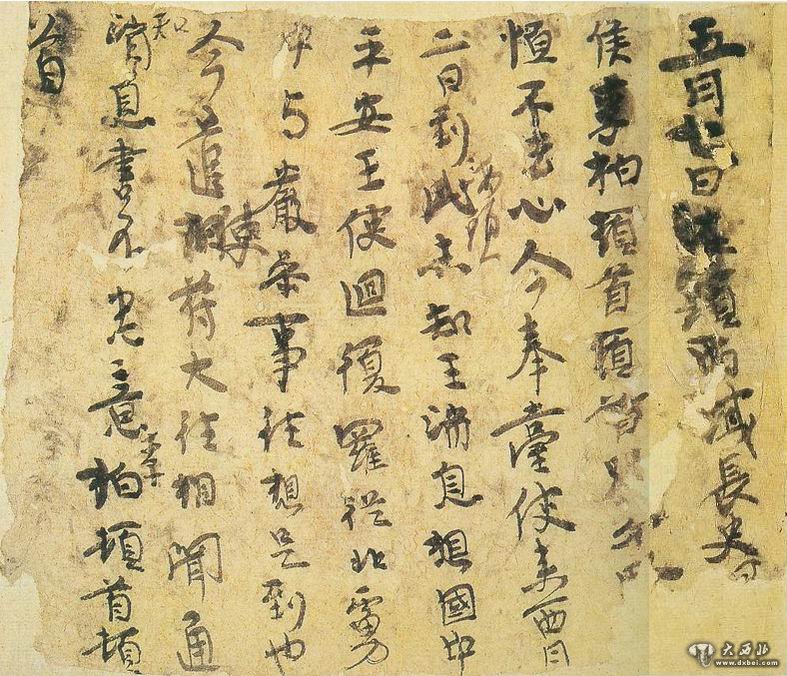 五月七日西域長史
侯李柏頓首頓首
恒不去心今奉臺使來西月
二日到此海頭未知王消息想國中
平安王使迴復羅從北虜
中与嚴參事往想是到也
今遣使苻大往相聞通
知消息書不盡意李柏頓首頓
首
大西北
www.dxbei.com